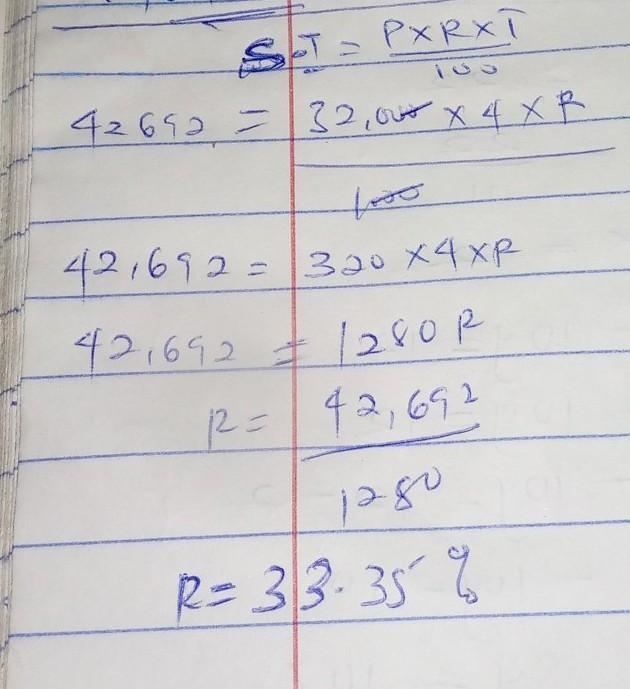 S.I = P×R×T
100
42692 = 32,000 × 4 × R
100
42,692 = 320 × 4 × R
42,692 = 1280 R
R = 42,692
1280
R = 33.35 %